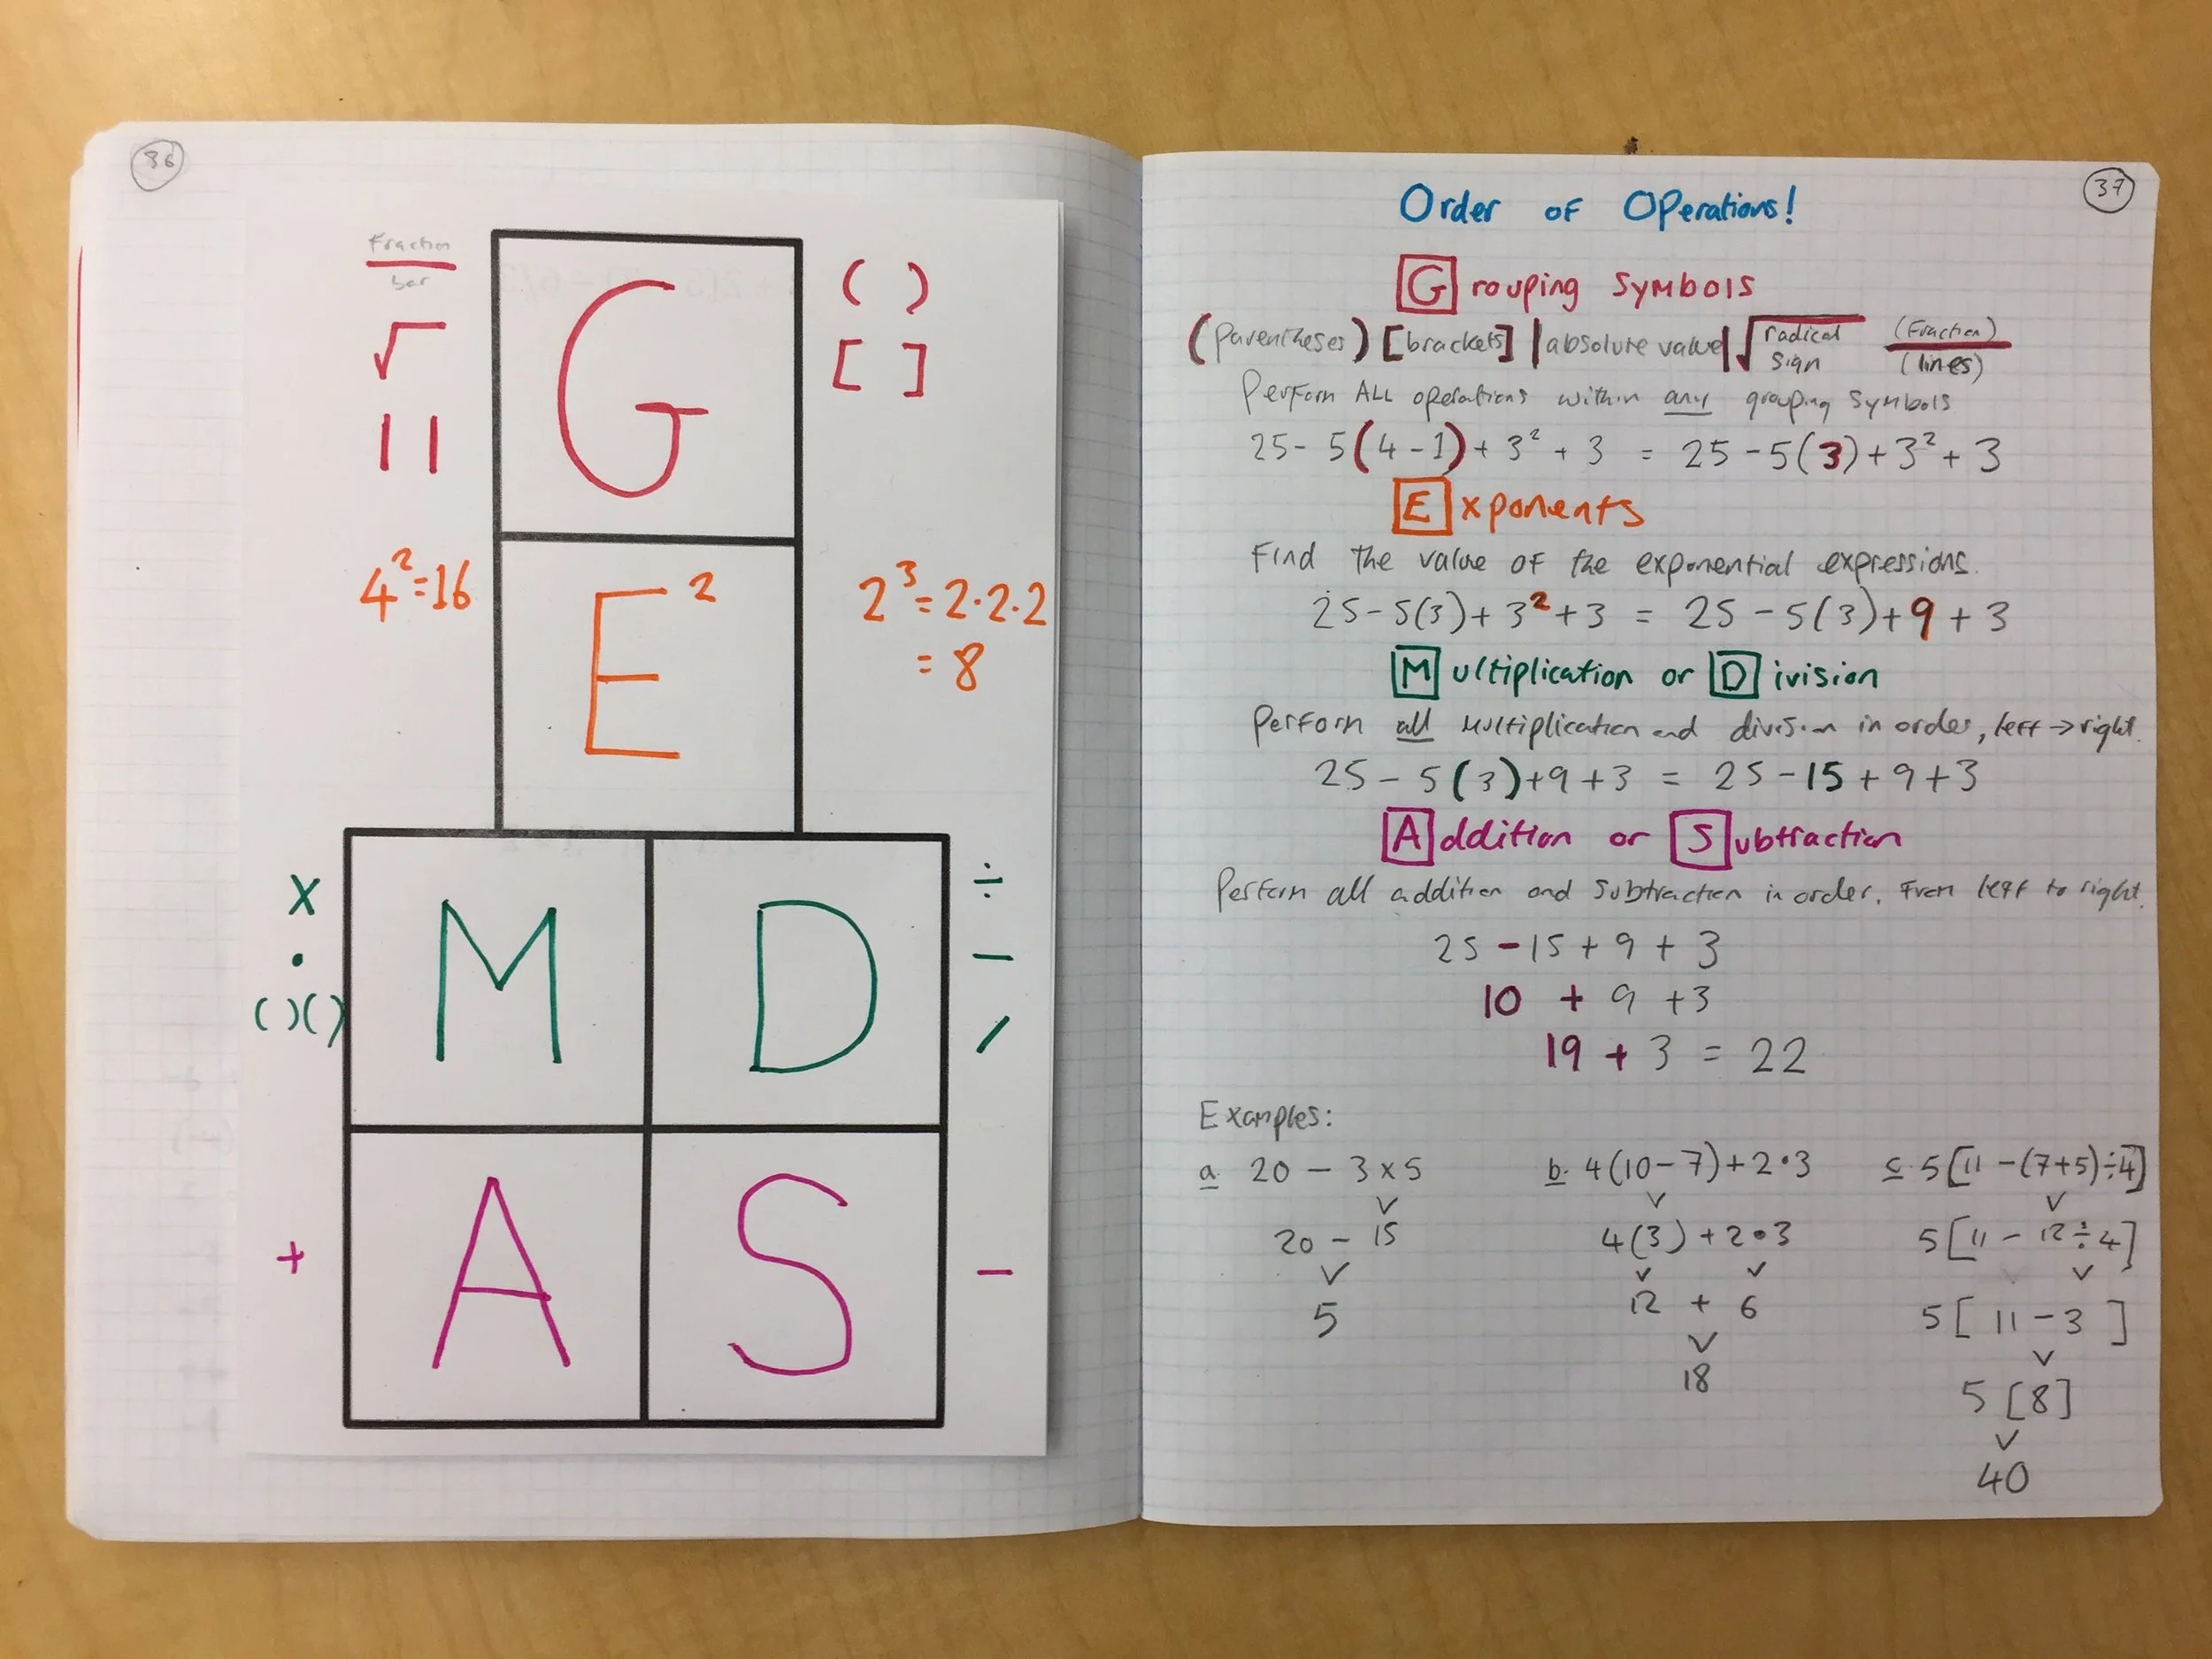 36
Fraction
bar
√
| |
G
( )
[ ]
4²=16
E²
2³=2·2·2
=8
x
·
( )( )
M
D
÷
—
/
+
A
S
−
37
Order of Operations!
Grouping Symbols
(parentheses) [brackets] |absolute value| √radical sign (Fraction)/(lines)
Perform ALL operations within any grouping symbols
25- 5(4-1)+3²+3 = 25-5(3)+3²+3
Exponents
Find the value of the exponential expressions.
25-5(3)+3²+3 = 25-5(3)+9+3
Multiplication or Division
Perform all multiplication and division in order, left→right.
25-5(3)+9+3 = 25-15+9+3
Addition or Subtraction
Perform all addition and subtraction in order, from left to right.
25-15+9+3
10 + 9 +3
19 + 3 = 22
Examples:
a. 20 - 3x5
20 - 15
5
b. 4(10-7)+2·3
4(3)+2·3
12 + 6
18
c. 5[11-(7+5)÷4]
5[11-12÷4]
5[11-3]
5[8]
40